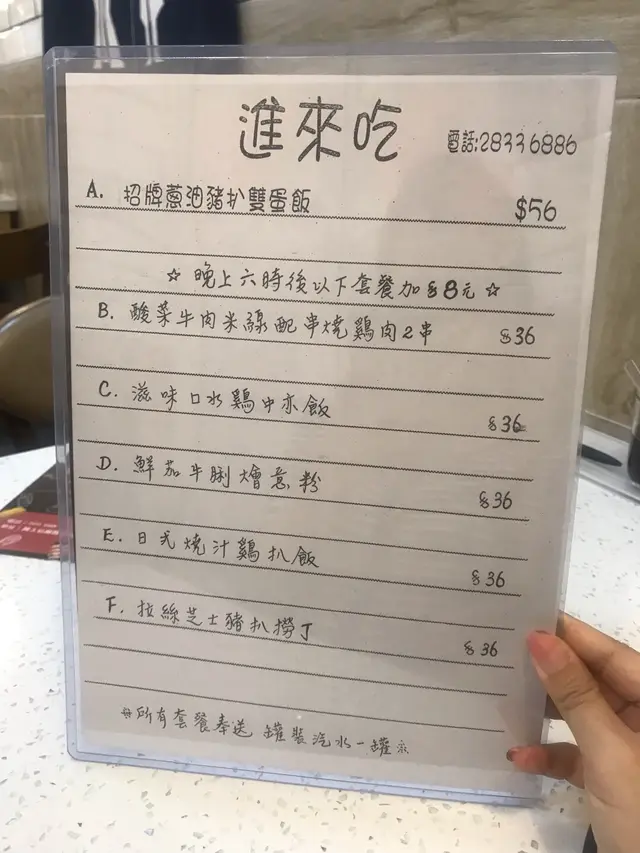 進來吃
電話:28336886
A. 招牌蔥油豬扒雙蛋飯 $56
☆ 晚上六時後以下套餐加$8元 ☆
B. 酸菜牛肉米線配串燒鷄肉2串 $36
C. 滋味口水鷄中亦飯 $36
D. 鮮茄牛脷燴意粉 $36
E. 日式燒汁鷄扒飯 $36
F. 拉絲芝士豬扒撈丁 $36
所有套餐奉送 罐裝汽水一罐